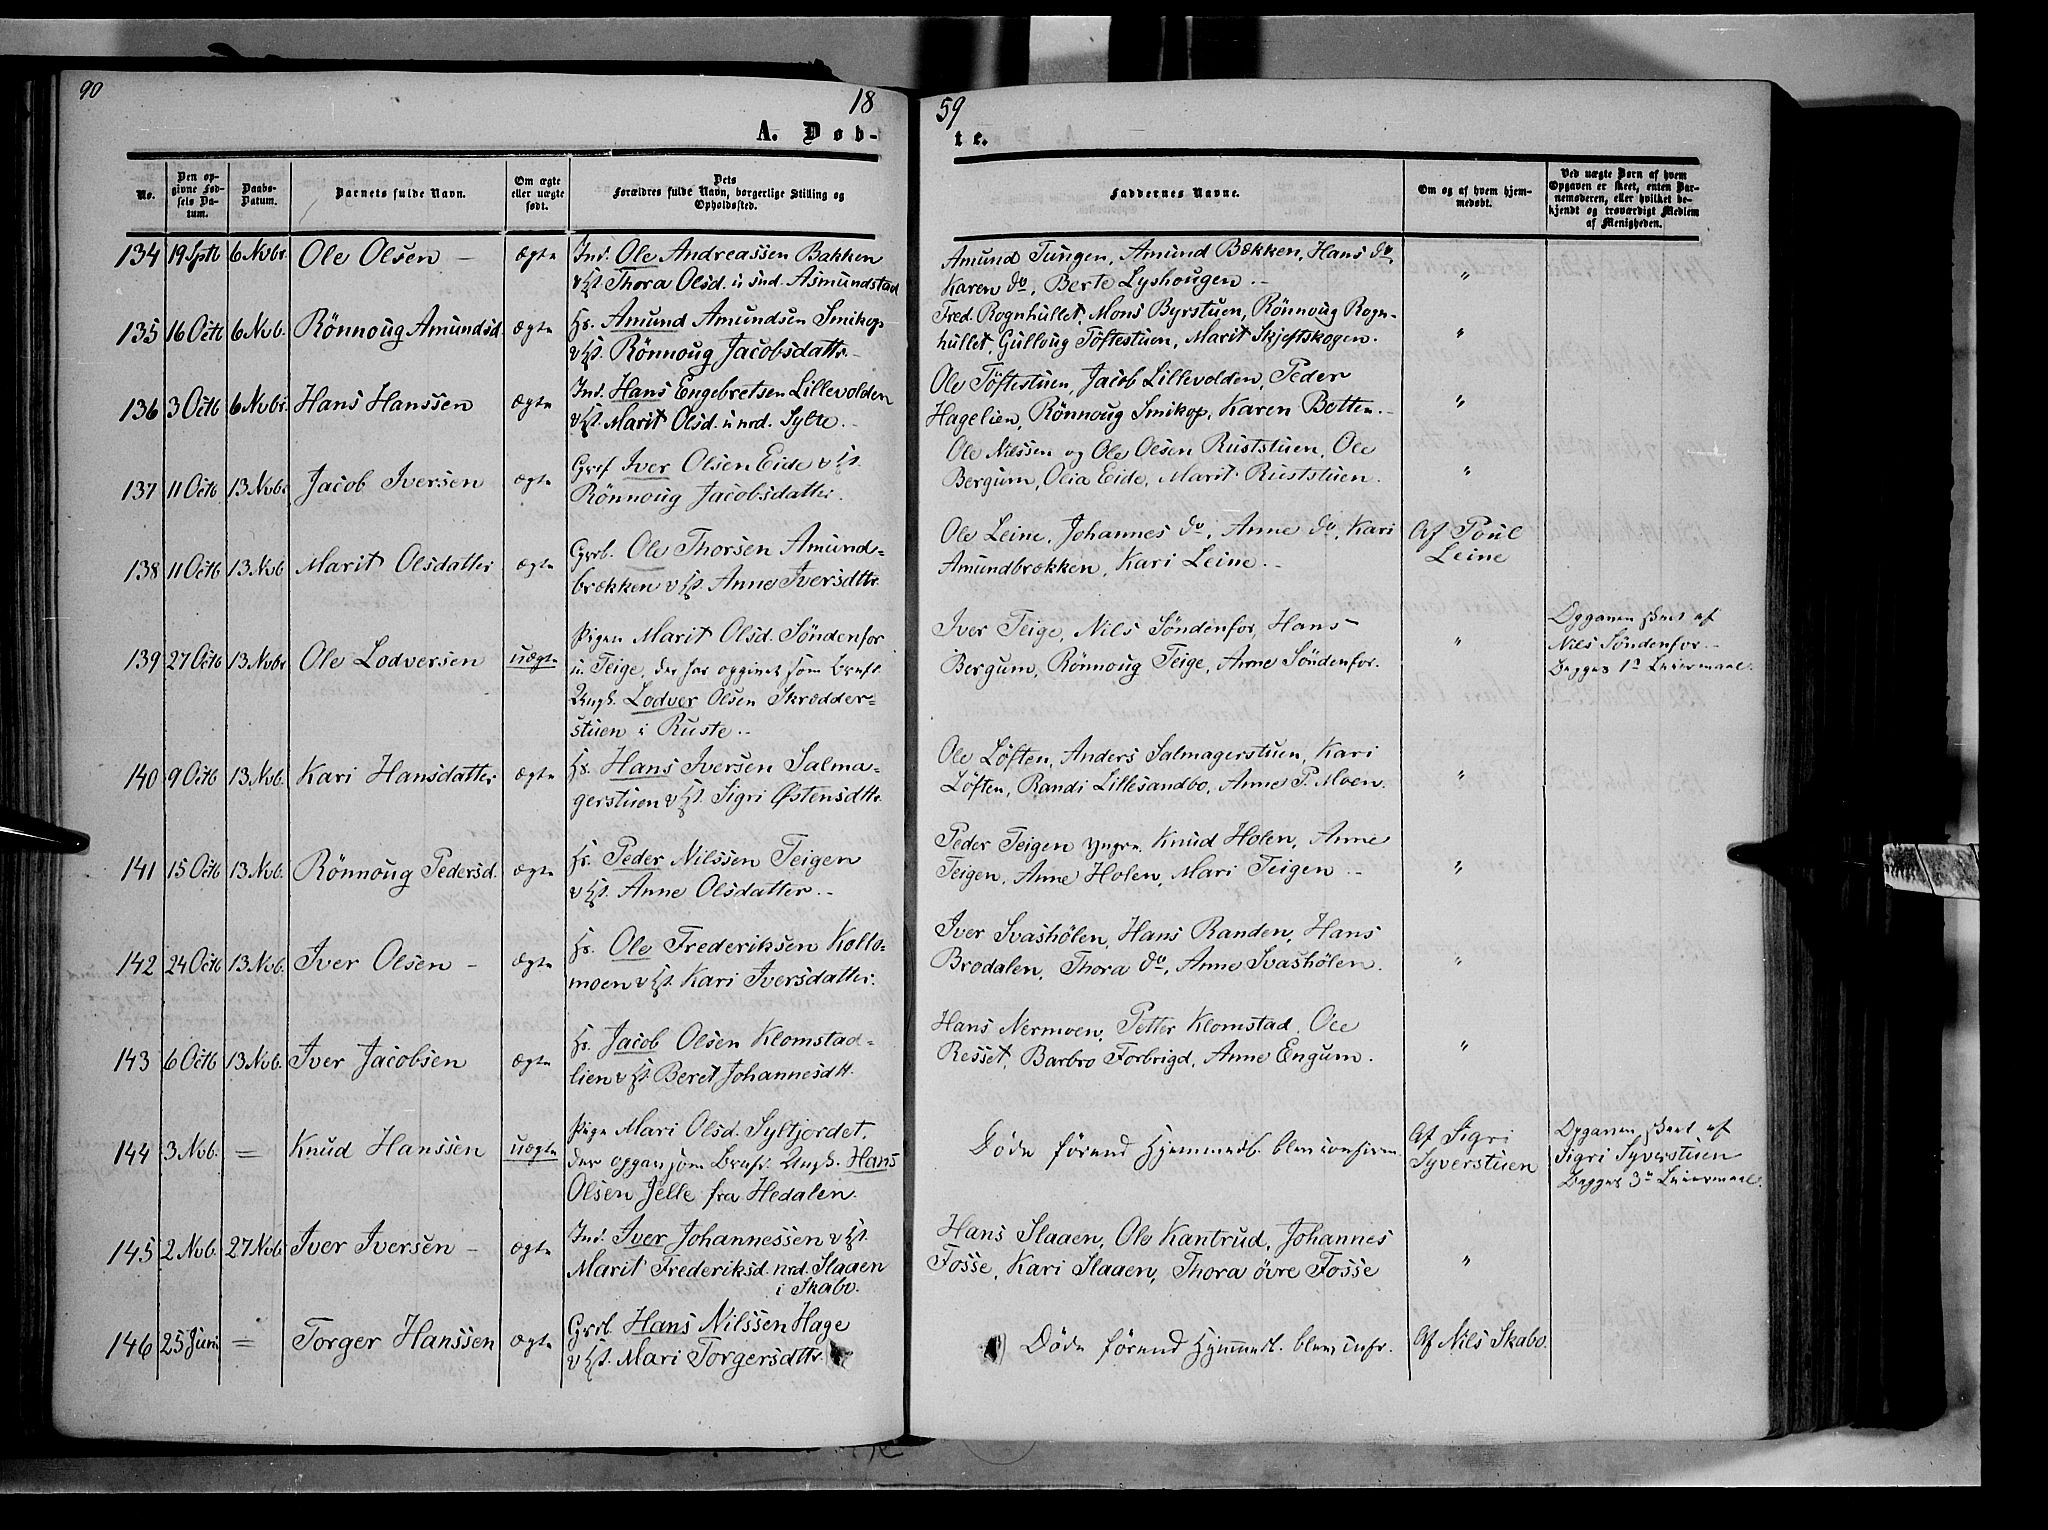 90
18
59
A. Døb-
te.
No.
Den op-
givne Fød-
sels Da-
tum.
Daabs-
Datum.
Barnets fulde Navn.
Om ægte
eller uægte
født.
Dets
Forældres fulde Navn, borgerlige Stilling og
Opholdssted.
Faddernes Navne.
Om og af hvem hjem-
medøbt.
Ved uægte Børn af hvem
Opgaven er skeet, enten Bar-
nemoderen, eller hvilket be-
kjendt og troværdigt Medlem
af Menigheden.
134 19 Sptb 6 Novbr. Ole Olsen - ægte Ind. Ole Andreassen Bakken
v Hst. Thora Olsd. u. snd. Asmundstad
Amund Tungen, Amund Bækken, Hans do,
Karen do, Berte Lyshougen. -
"
135 16 Octb 6 Novb. Rönnoug Amundsd. ægte Hs. Amund Amundsen Smikop
v Hst. Rönnoug Jacobsdattr. -
Fred. Rognhullet, Mons Byrstuen, Rönnoug Rogn-
hullet, Gulloug Töftestuen, Marit Skjeftskogen.
"
136 3 Octb 6 Novbr. Hans Hanssen ægte Ind. Hans Engebretsen Lillevolden
v Hst. Marit Olsd. u. nrd. Sylte. -
Ole Töftestuen, Jacob Lillevolden, Peder
Hagelien, Rönnoug Smikop, Karen Botten. -
"
137 11 Octb 13 Novbr Jacob Iversen ægte Grbf Iver Olsen Eide v Hst.
Rönnoug Jacobsdatter.
Ole Nilssen og Ole Olsen Ruststuen, Ole
Bergum, Olia Eide, Marit Ruststuen.
"
138 11 Octb 13 Novb Marit Olsdatter ægte Grrb. Ole Thorsen Amund-
brækken v Hst. Anne Iversdttr.
Ole Leine, Johannes do, Anne do, Kari
Amundbrækken, Kari Leine. -
Af Poul
Leine
139 27 Octb 13 Novbr Ole Lodversen uægte Pigen Marit Olsd. Söndenfor
u. Teige, der har opgivet som Brnf.
Ungk. Lodver Olsen Skrædder-
stuen i Ruste. -
Iver Teige, Nils Söndenfor, Hans
Bergum, Rönnoug Teige, Anne Söndenfor.
"
Opgaven skeet af
Nils Söndenfor. -
Begges 1e Leiermaal.
140 9 Octb 13 Novb. Kari Hansdatter ægte Hs. Hans Iversen Salma-
gerstuen v Hst. Sigri Østensdttr.
Ole Löften, Anders Salmagerstuen, Kari
Löften, Randi Lillesandbo, Anne P. Moen.
"
141 15 Octb 13 Novb. Rönnoug Pedersd. ægte Hs. Peder Nilssen Teigen
v Hst. Anne Olsdatter. -
Peder Teigen yngre, Knud Holen, Anne
Teigen, Anne Holen, Mari Teigen. -
"
142 24 Octb 13 Novb. Iver Olsen - ægte Hs. Ole Frederiksen Kollo-
moen v Hst. Kari Iversdatter.
Iver Svashölen, Hans Randen, Hans
Brodalen, Thora do, Anne Svashölen.
"
143 6 Octb 13 Novb. Iver Jacobsen ægte Hs. Jacob Olsen Klomstad-
lien v Hst. Beret Johannesdtt.
Hans Nermoen, Petter Klomstad, Ole
Resset, Barbro Forbrigd, Anne Engum.
"
144 3 Novb. = Knud Hanssen uægte Pige Mari Olsd. Syltjordet,
der opgav som Brnf. Ungk. Hans
Olsen Jelle fra Hedalen.
Döde förend Hjemmedb. blev confirm.
Af Sigri
Syverstuen
Opgaven skeet af
Sigri Syverstuen
Begges 3e Leiermaal.
145 2 Novb. 27 Novb Iver Iversen - ægte Ind. Iver Johannessen v Hst.
Marit Frederiksd. nrd. Slaaen
i Skabo.
Hans Slaaen, Ole Kantrud, Johannes
Fosse, Kari Slaaen, Thora övre Fosse
"
146 25 Juni = Torger Hanssen ægte Grrb. Hans Nilssen Hage
v Hst. Mari Torgersdttr.
Döde förend Hjemmed. blev cnfr.
Af Nils Skabo.